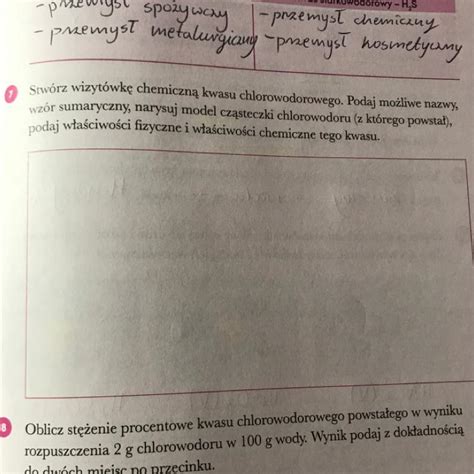 -przemysł spożywczy
-przemysł chemiczny
siarkowodorowy – H₂S
- przemysł metalurgiczny
-przemysł kosmetyczny
Stwórz wizytówkę chemiczną kwasu chlorowodorowego. Podaj możliwe nazwy,
wzór sumaryczny, narysuj model cząsteczki chlorowodoru (z którego powstał),
podaj właściwości fizyczne i właściwości chemiczne tego kwasu.
8 Oblicz stężenie procentowe kwasu chlorowodorowego powstałego w wyniku
rozpuszczenia 2 g chlorowodoru w 100 g wody. Wynik podaj z dokładnością
do dwóch miejsc po przecinku.